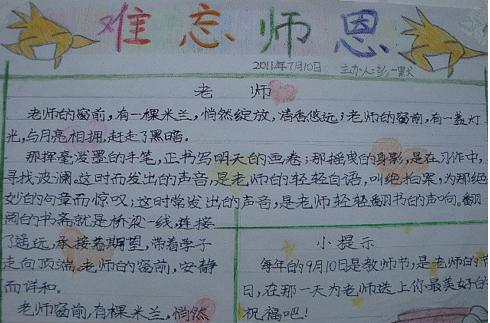 难忘师恩
2011年7月10日 主办人:彭一默
老师
老师的窗前,有一棵米兰,悄然绽放,清香悠远;老师的窗前,有一盏灯
光,与月亮相拥,赶走了黑暗。
那挥毫泼墨的手笔,正书写明天的画卷;那摇曳的身影,是在习作中,
寻找波澜。这时而发出的声音,是老师的轻轻自语,叫绝拍案,为那绝
妙的句章而惊叹;这时常发出的声音,是老师轻轻翻书的声响。翻
阅的书斋就是桥梁一线,连接
了遥远,承接着期望,带着学子
走向顶端。老师的窗前,安静
而详和。
老师窗前,有棵米兰,悄然
小提示
每年的9月10日是教师节,是老师的节
日,在那一天为老师送上你最美好的
祝福吧!